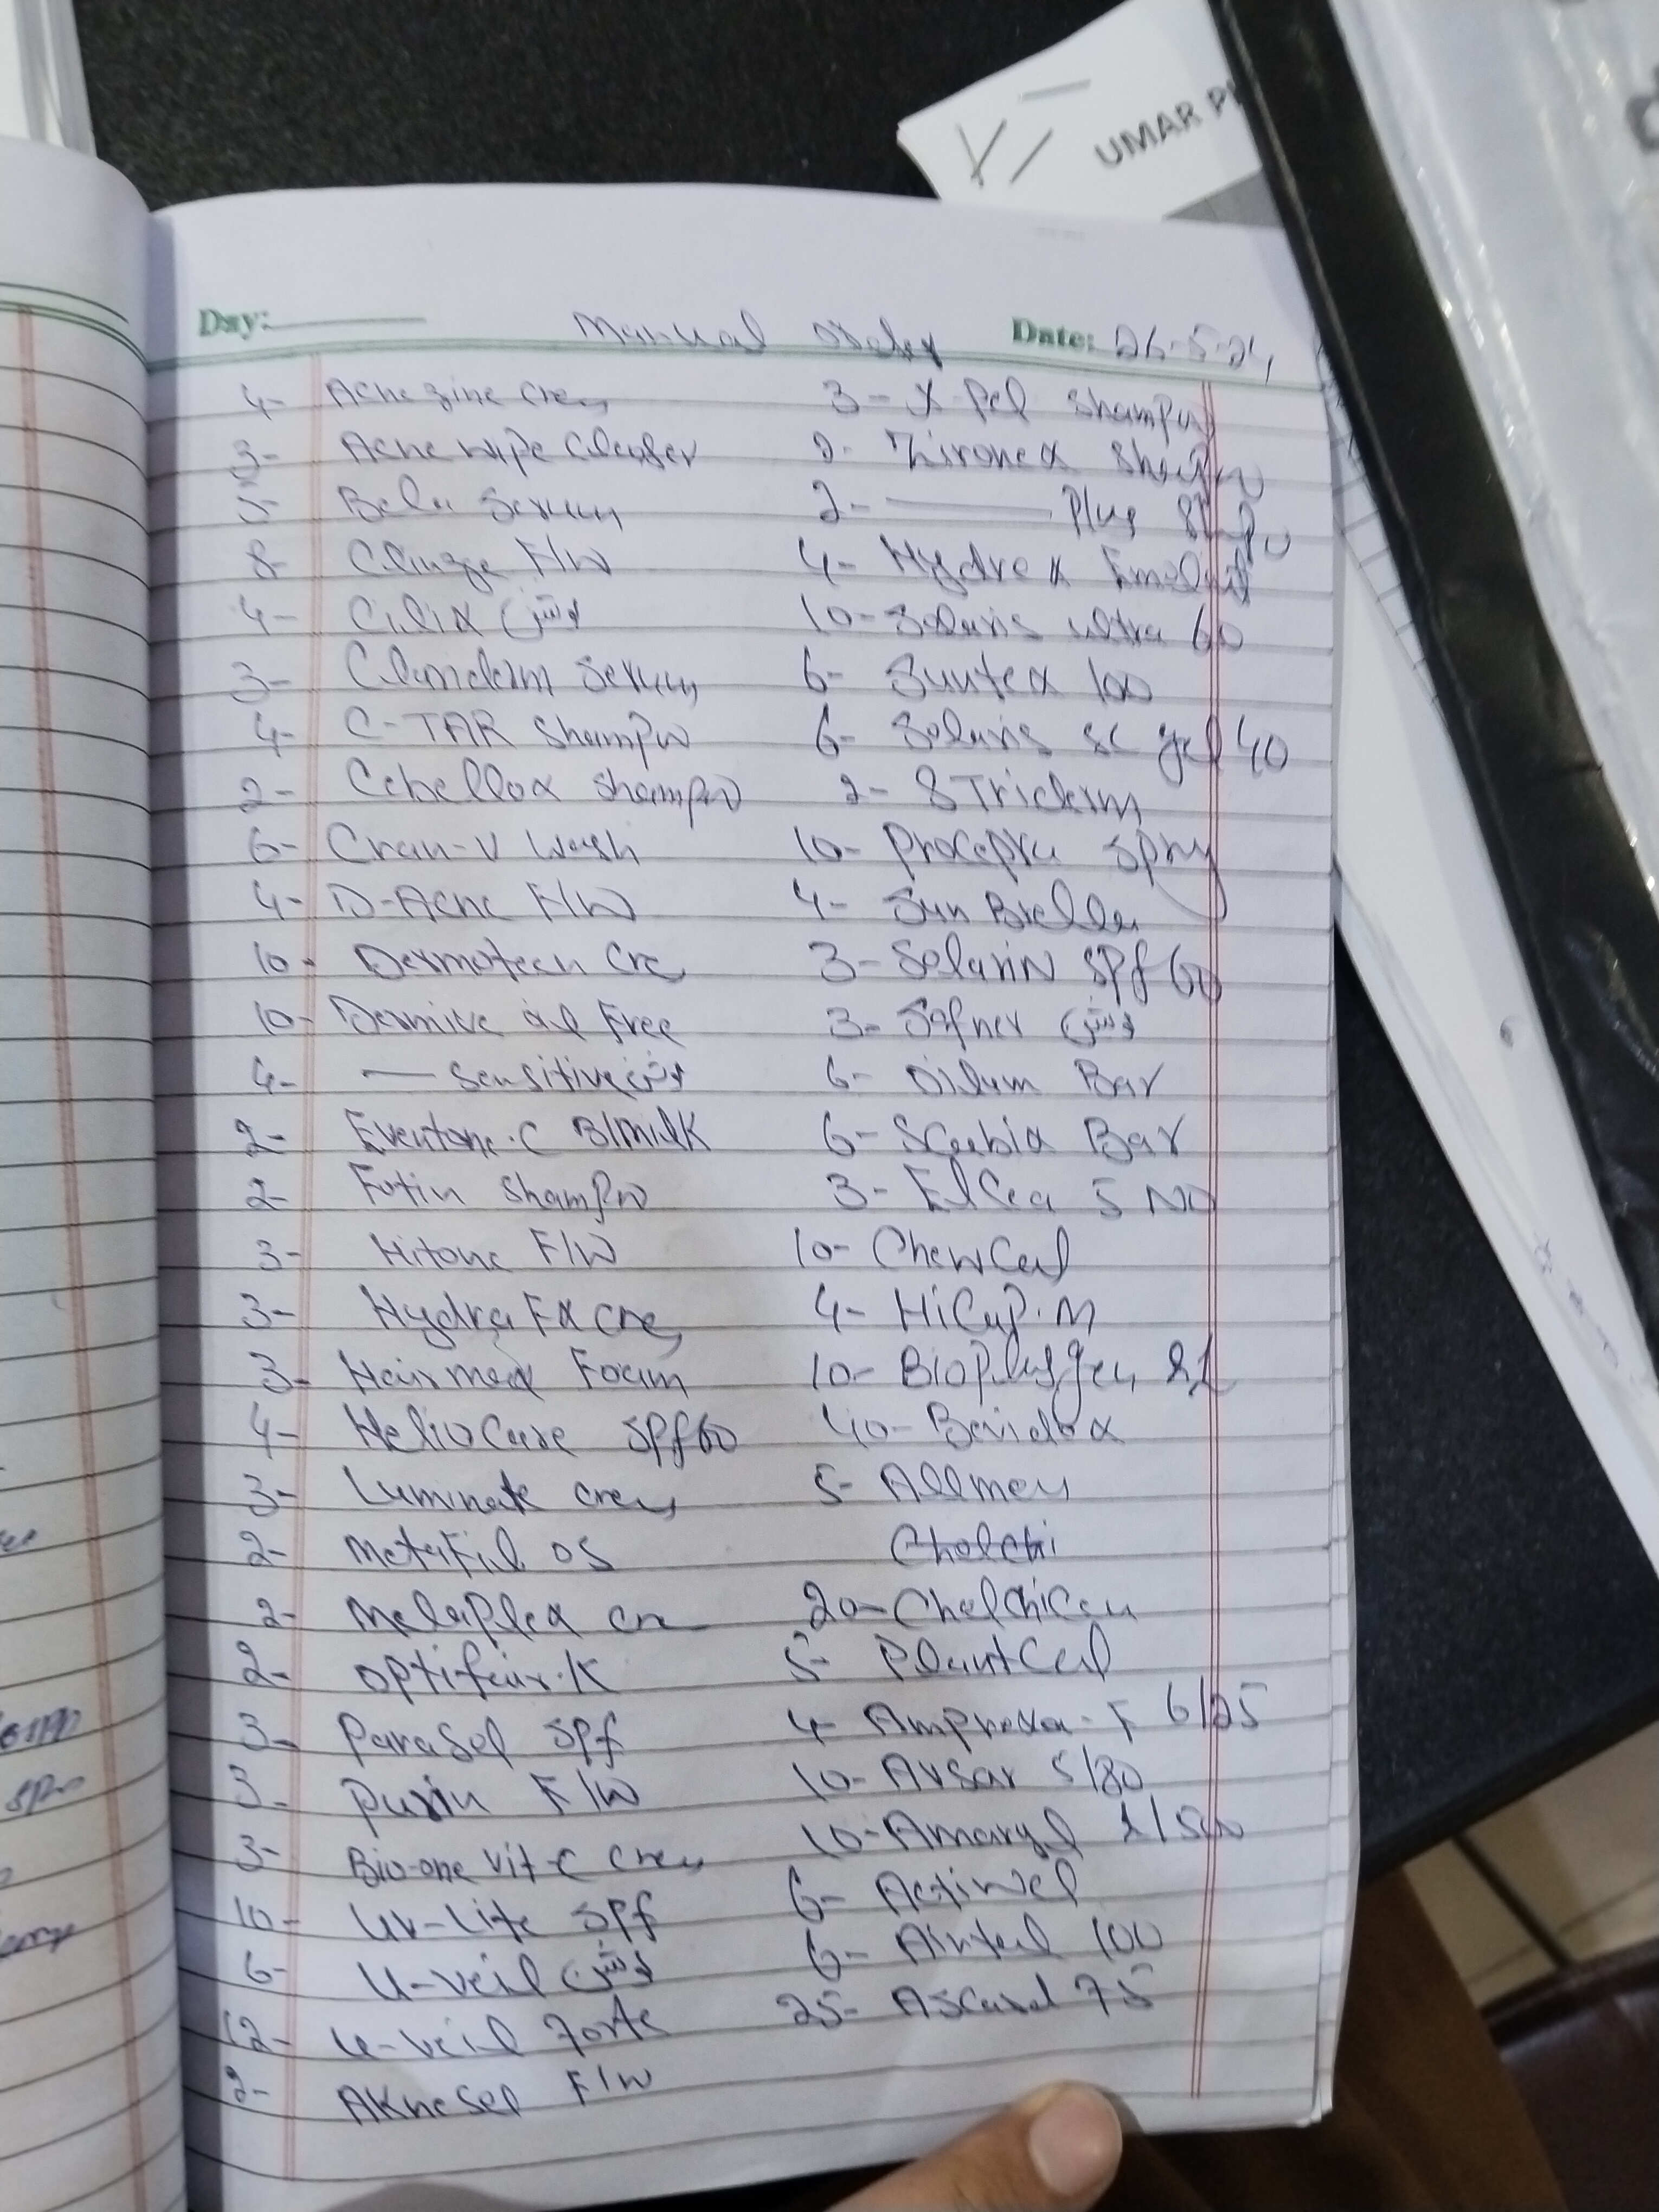 UMAR P
Day:
Manual Order
Date: 26-5-24
4- Acne zine Cream
3- Acne wipe Cleaser
5- Bela Serum
8- Clinzge F/W
4- Cilix لوشن
3- Clanderm Serum
4- C-TAR Shampo
2- Cebellox Shampo
6- Cran-V Wash
4- D-Acne F/W
10- Dermotech Cre
10- Dermive oil Free
4- — Sensitive لوشن
2- Eventone-C B/Milk
2- Futin Shampo
3- Hitone F/W
3- Hydra FX Cre
3- Hairmax Foam
4- HelioCare Spf60
3- Luminate Cream
2- Metafil OS
2- Melaplex Cre
2- Optifair-K
3- Parasol Spf
3- Purin F/W
3- Bio-one Vit-C Cream
10- UV-Lite Spf
6- U-veil لوشن
12- U-veil Forte
2- AKnesel F/W
3- X-Pel Shampo
2- Zironex Shampo
2- — Plus Shmpo
4- Hydrex Emolint
10- Solaris ultra 60
6- Suntex 100
6- Solaris SC gel 40
2- STriderm
10- Procepra Spry
4- Sun Brella
3- Solarin SPf 60
3- Sofner لوشن
6- Oilum Bar
6- Scabix Bar
3- ElCea 5 NO
10- ChewCal
4- HiCap-M
10- Bioplasgen
40- Bevidox
5- Allmen
Cholchi
20- Cholchicen
5- PlantCal
4- Ampnexa-F 6/25
10- Avsar 5/80
10- Amaryl 2/500
6- Actiwel
6- Aintel 100
25- Ascard 75